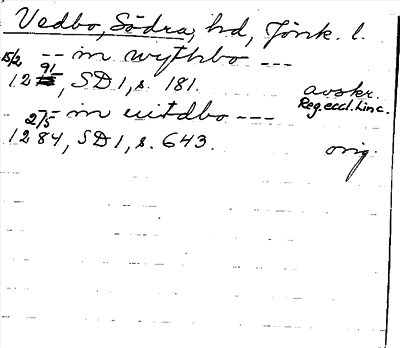 Vedbo, Södra, hd, Jönk. l.
15/2 -- in wythbo ---
1291, SD 1, s. 181. avskr.
Reg. eccl. Linc.
27/5 -- in uitdbo ---
1284, SD 1, s. 643. orig.